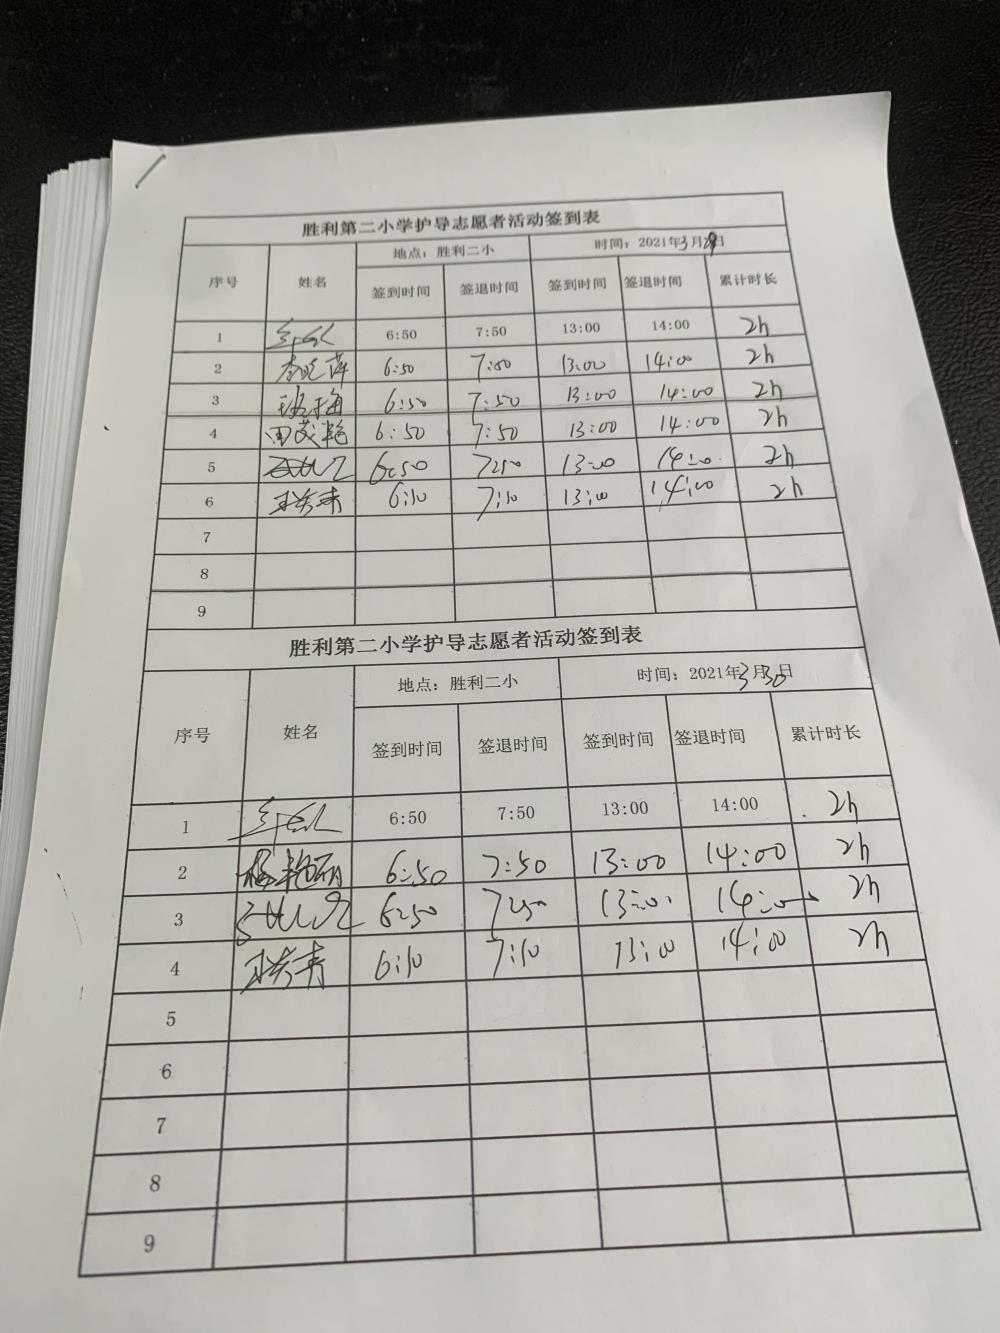 胜利第二小学护导志愿者活动签到表
序号 姓名 地点：胜利二小 时间：2021年3月29日
签到时间 签退时间 签到时间 签退时间 累计时长
1 6:50 7:50 13:00 14:00 2h
2 李晓萍 6:50 7:50 13:00 14:00 2h
3 6:50 7:50 13:00 14:00 2h
4 田茂艳 6:50 7:50 13:00 14:00 2h
5 6:50 7:50 13:00 14:00 2h
6 6:10 7:10 13:00 14:00 2h
7
8
9
胜利第二小学护导志愿者活动签到表
序号 姓名 地点：胜利二小 时间：2021年3月30日
签到时间 签退时间 签到时间 签退时间 累计时长
1 6:50 7:50 13:00 14:00 2h
2 杨艳丽 6:50 7:50 13:00 14:00 2h
3 6:50 7:50 13:00 14:00 2h
4 6:10 7:10 13:00 14:00 2h
5
6
7
8
9